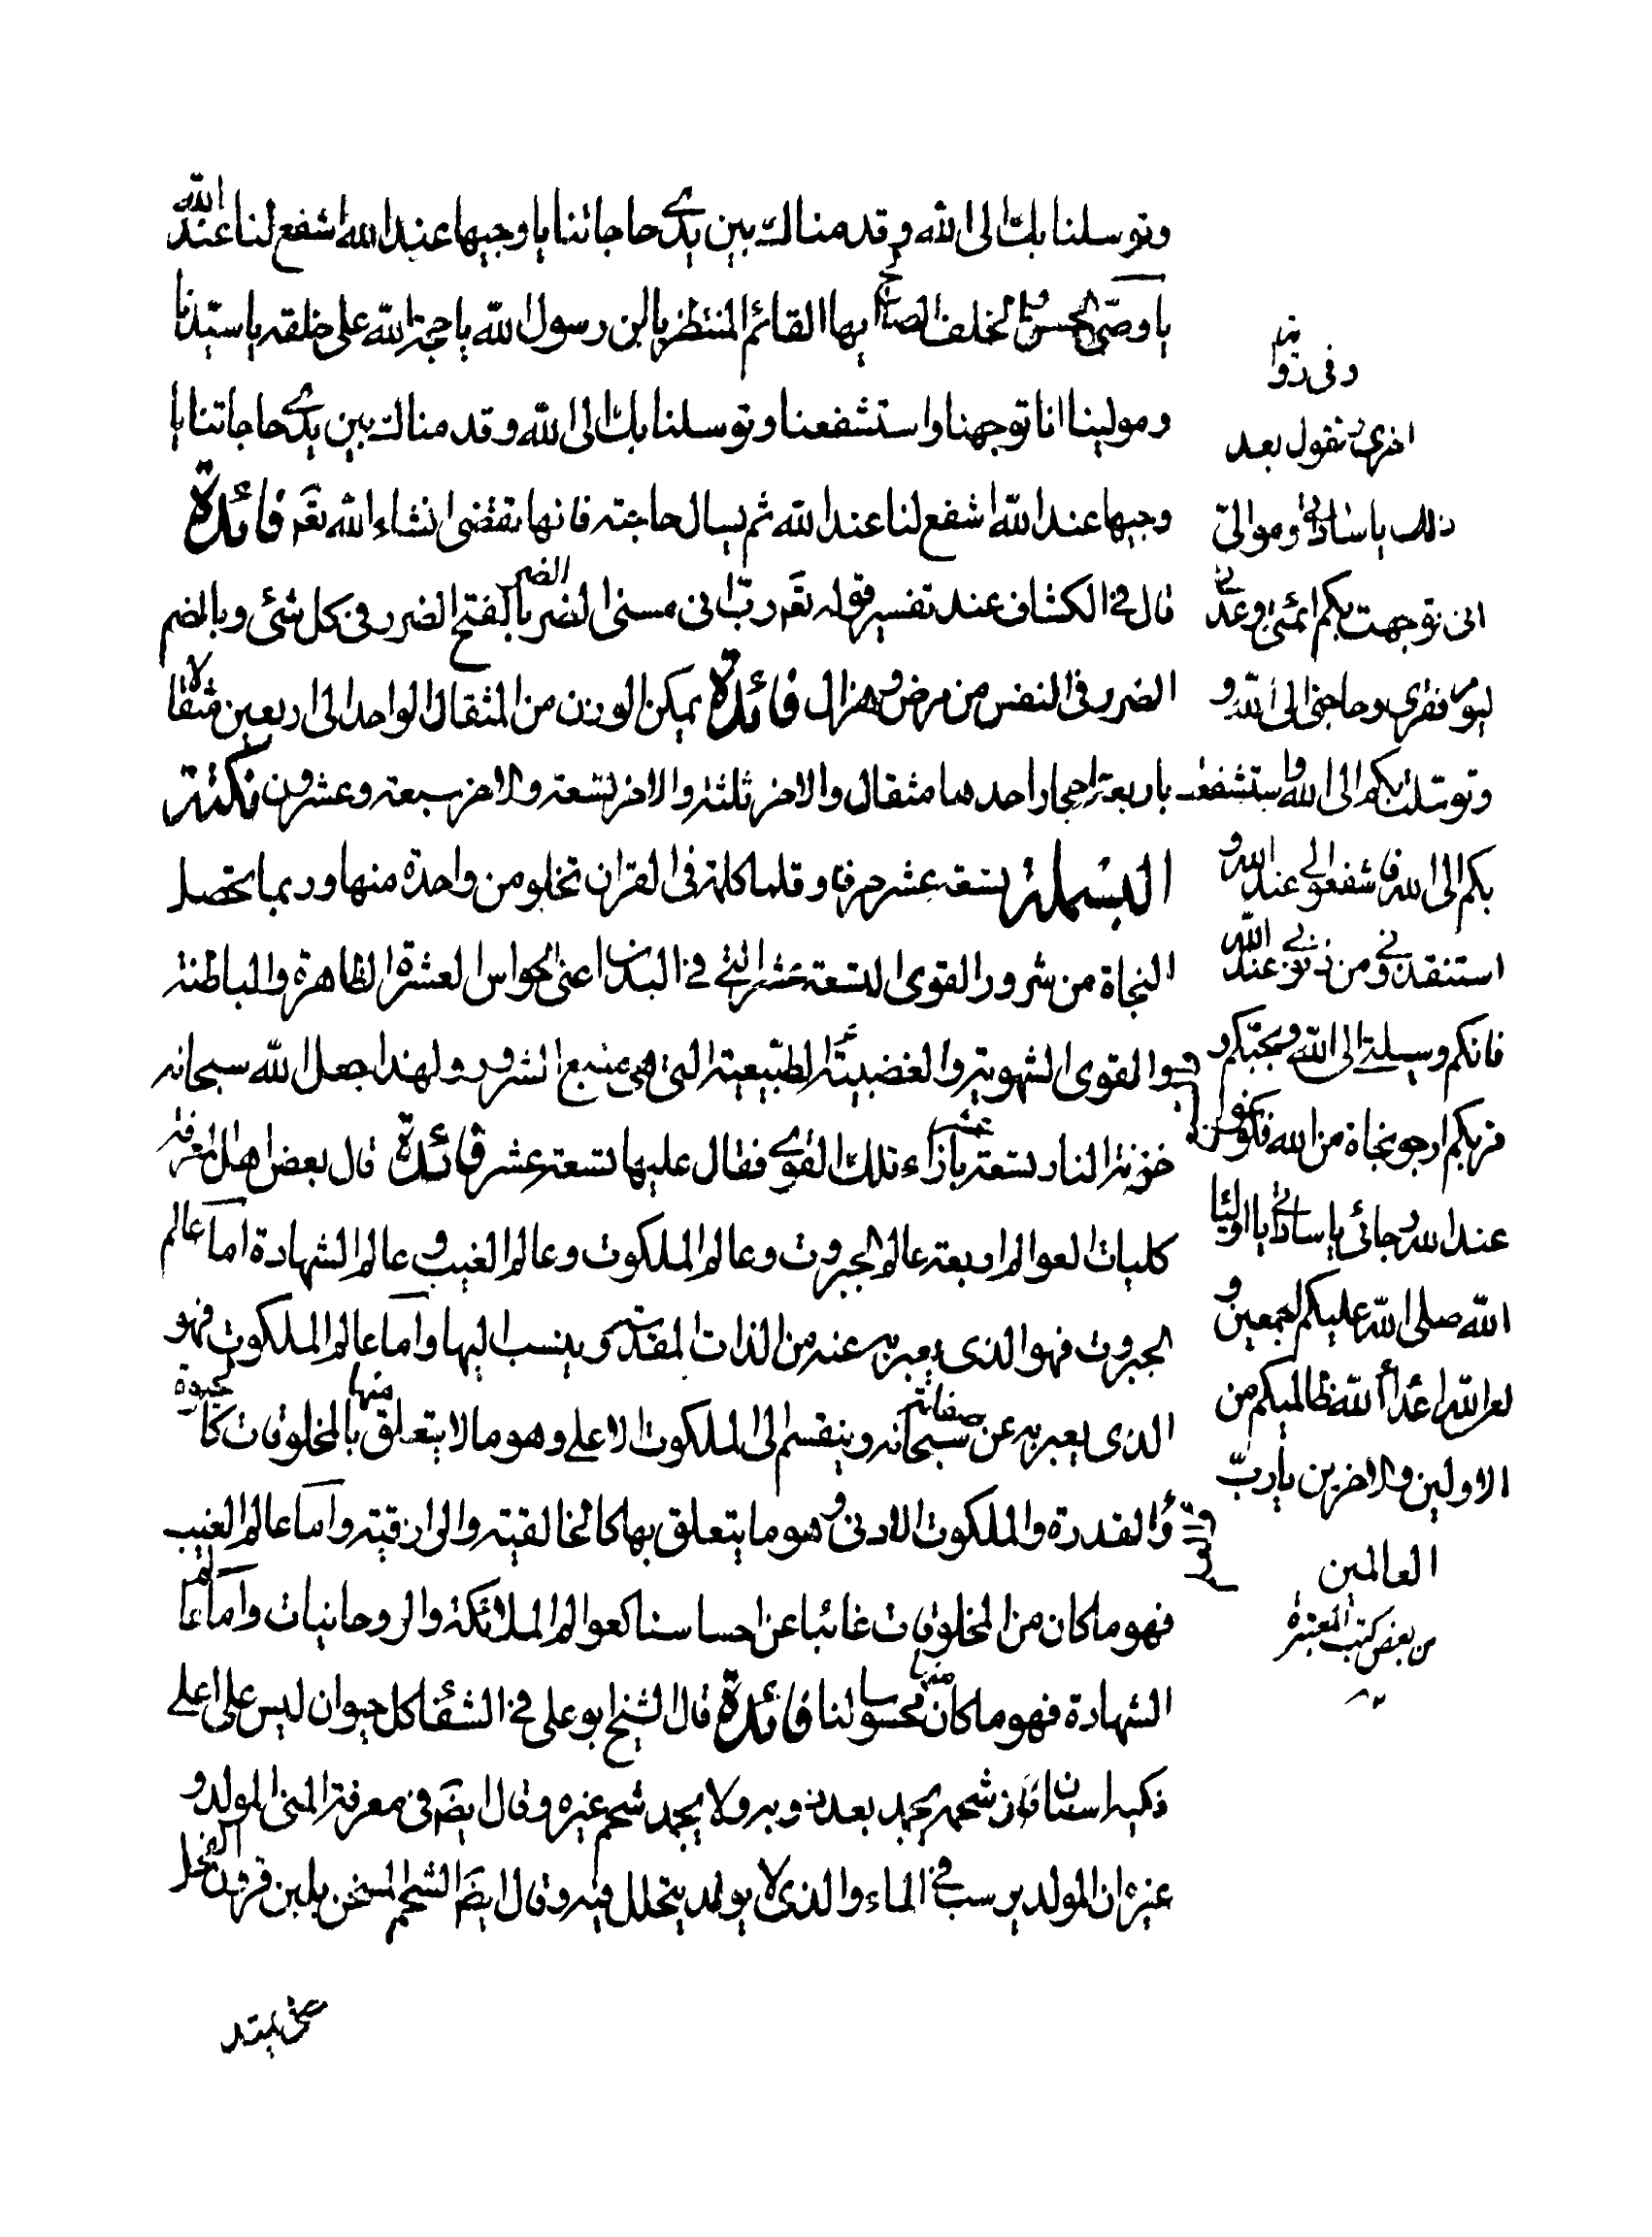 وتوسلنا بك الى الله وقدمناك بين يدى حاجاتنا يا وجيها عند الله اشفع لنا عند الله
يا وصى الحسن والخلف الصالح ايها القائم المنتظر يا ابن رسول الله يا حجة الله على خلقه يا سيدنا
ومولينا انا توجهنا واستشفعنا وتوسلنا بك الى الله وقدمناك بين يدى حاجاتنا يا
وجيها عند الله اشفع لنا عند الله ثم يسال حاجته فانها تقضى انشاء الله تعَ فائدة
قال فى الكشاف عند تفسير قوله تعَ رب انى مسنى الضر الضر بالفتح الضرر فى كل شئ وبالضم
الضرر فى النفس من مرض وهزال فائدة يمكن الوزن من المثقال الواحد الى اربعين مثقالا
باربعة احجار احدها مثقال والاخر ثلثة والاخر تسعة والاخر سبعة وعشرون نكتة
البسملة تسعة عشر حرفا وقلما كلمة فى القران تخلو من واحدة منها وربما تحصل
النجاة من شرور القوى التسعة عشر التى فى البدن اعنى الحواس العشرة الظاهرة والباطنة
والقوى الشهوية والغضبية الطبيعية التى هى منبع الشرور ولهذا جعل الله سبحانه
خزنة النار تسعة عشر بازاء تلك القوى فقال عليها تسعة عشر فائدة قال بعض اهل المعرفة
كليات العوالم اربعة عالم الجبروت وعالم الملكوت وعالم الغيب وعالم الشهادة اما عالم
الجبروت فهو الذى يعبر به عنه من الذات المقدسة وينسب اليها واما عالم الملكوت فهو
الذى يعبر به عن صفاته سبحانه وينقسم الى الملكوت الاعلى وهو ما لا يتعلق منها بالمخلوقات كالحيوة
والقدرة والملكوت الادنى وهو ما يتعلق بها كالخالقية والرازقية واما عالم الغيب
فهو ما كان من المخلوقات غائبا عن احساسنا كعوالم الملائكة والروحانيات واما عالم
الشهادة فهو ما كان منها محسوسا لنا فائدة قال الشيخ ابو على فى الشفا كل حيوان ليس على اعلى
فكيه اسنان فان شحمه يجمد بعد ذوبه ولا يجمد شحم غيره وقال ايضَ فى معرفة المنى المولد و
غيره ان المولد يرسب فى الماء والذى لا يولد يتحلل فيه وقال ايضَ الشحم المسخن بلبن قرون النخل
وفى رواية
اخرى تقول بعد
ذلك يا ساداتى وموالى
انى توجهت بكم ائمتى وعدتى
ليوم فقرى وحاجتى الى الله و
وتوسلت بكم الى الله واستشفعت
بكم الى الله فاشفعوا لى عند الله و
استنقذونى من ذنوبى عند الله
فانكم وسيلتى الى الله وبحبكم و
قربكم ارجو نجاة من الله فكونوا
عند الله رجائى يا ساداتى يا اولياء
الله صلى الله عليكم اجمعين و
لعن الله اعداء الله ظالميكم من
الاولين والاخرين يا رب
العالمين
من بعض كتب المعتبره